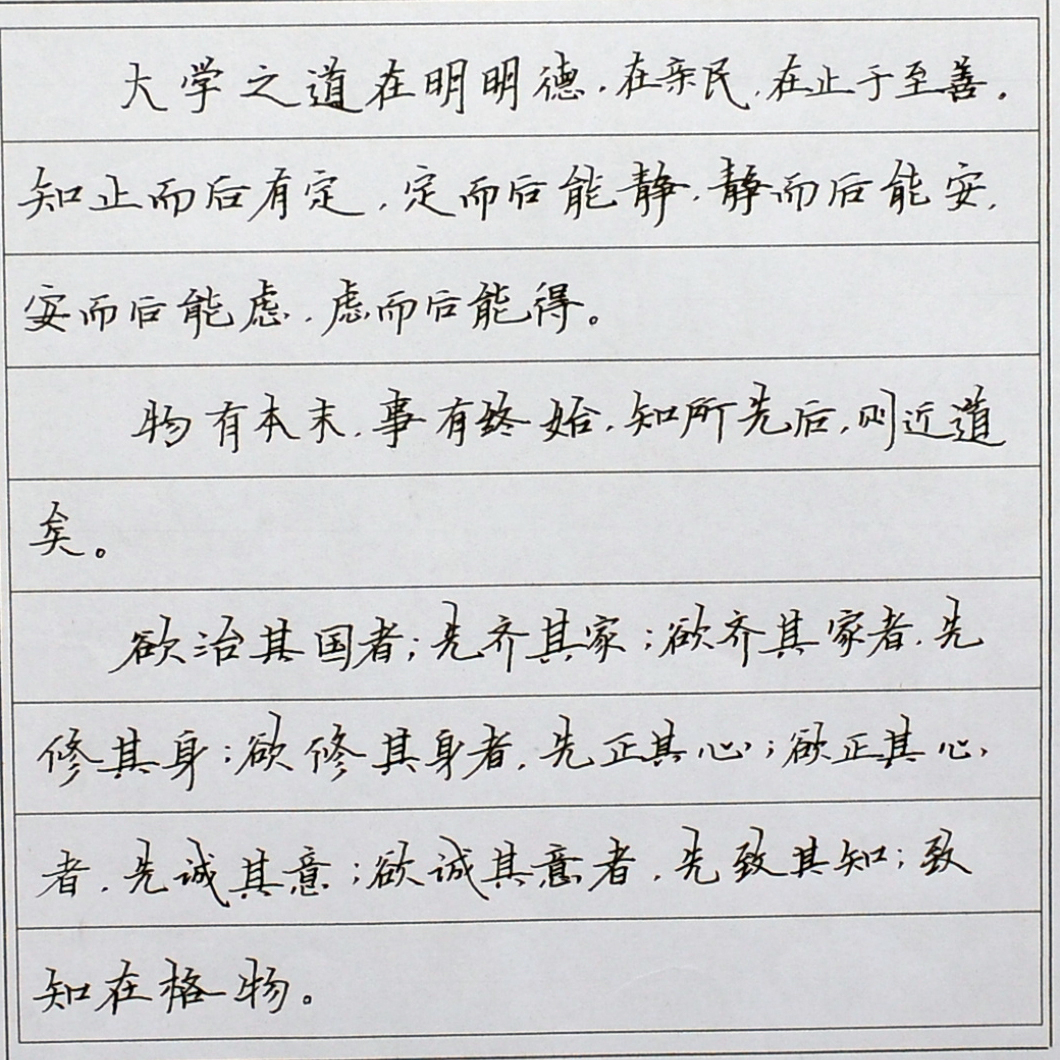 大学之道在明明德，在亲民，在止于至善。
知止而后有定，定而后能静，静而后能安，
安而后能虑，虑而后能得。
物有本末，事有终始，知所先后，则近道
矣。
欲治其国者；先齐其家；欲齐其家者，先
修其身；欲修其身者，先正其心；欲正其心，
者，先诚其意；欲诚其意者，先致其知；致
知在格物。